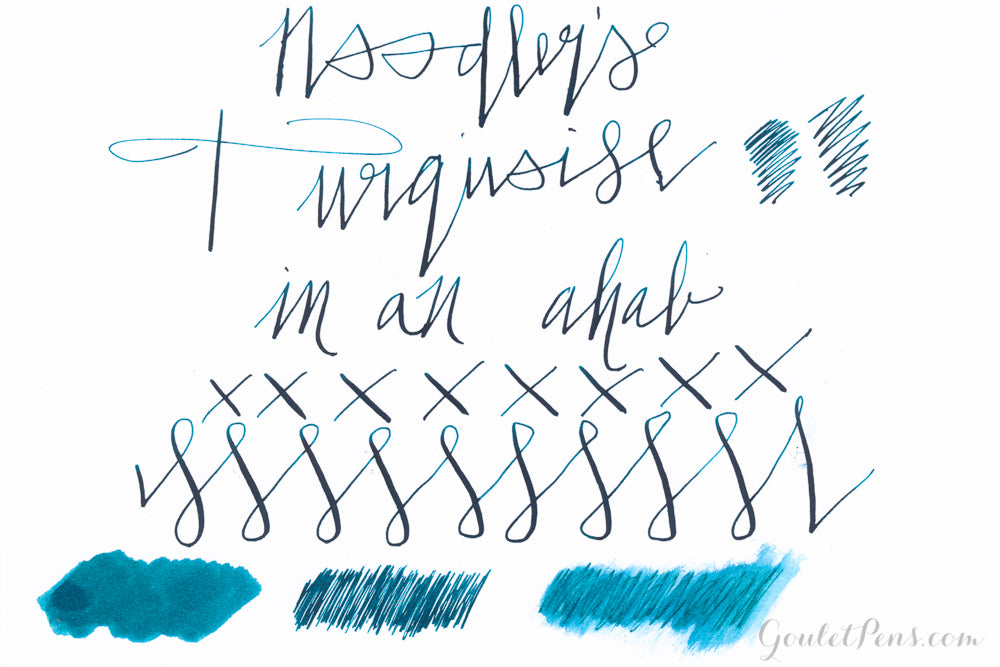 Noodler's
Turquoise
in an ahab
x x x x x x x x
GouletPens.com